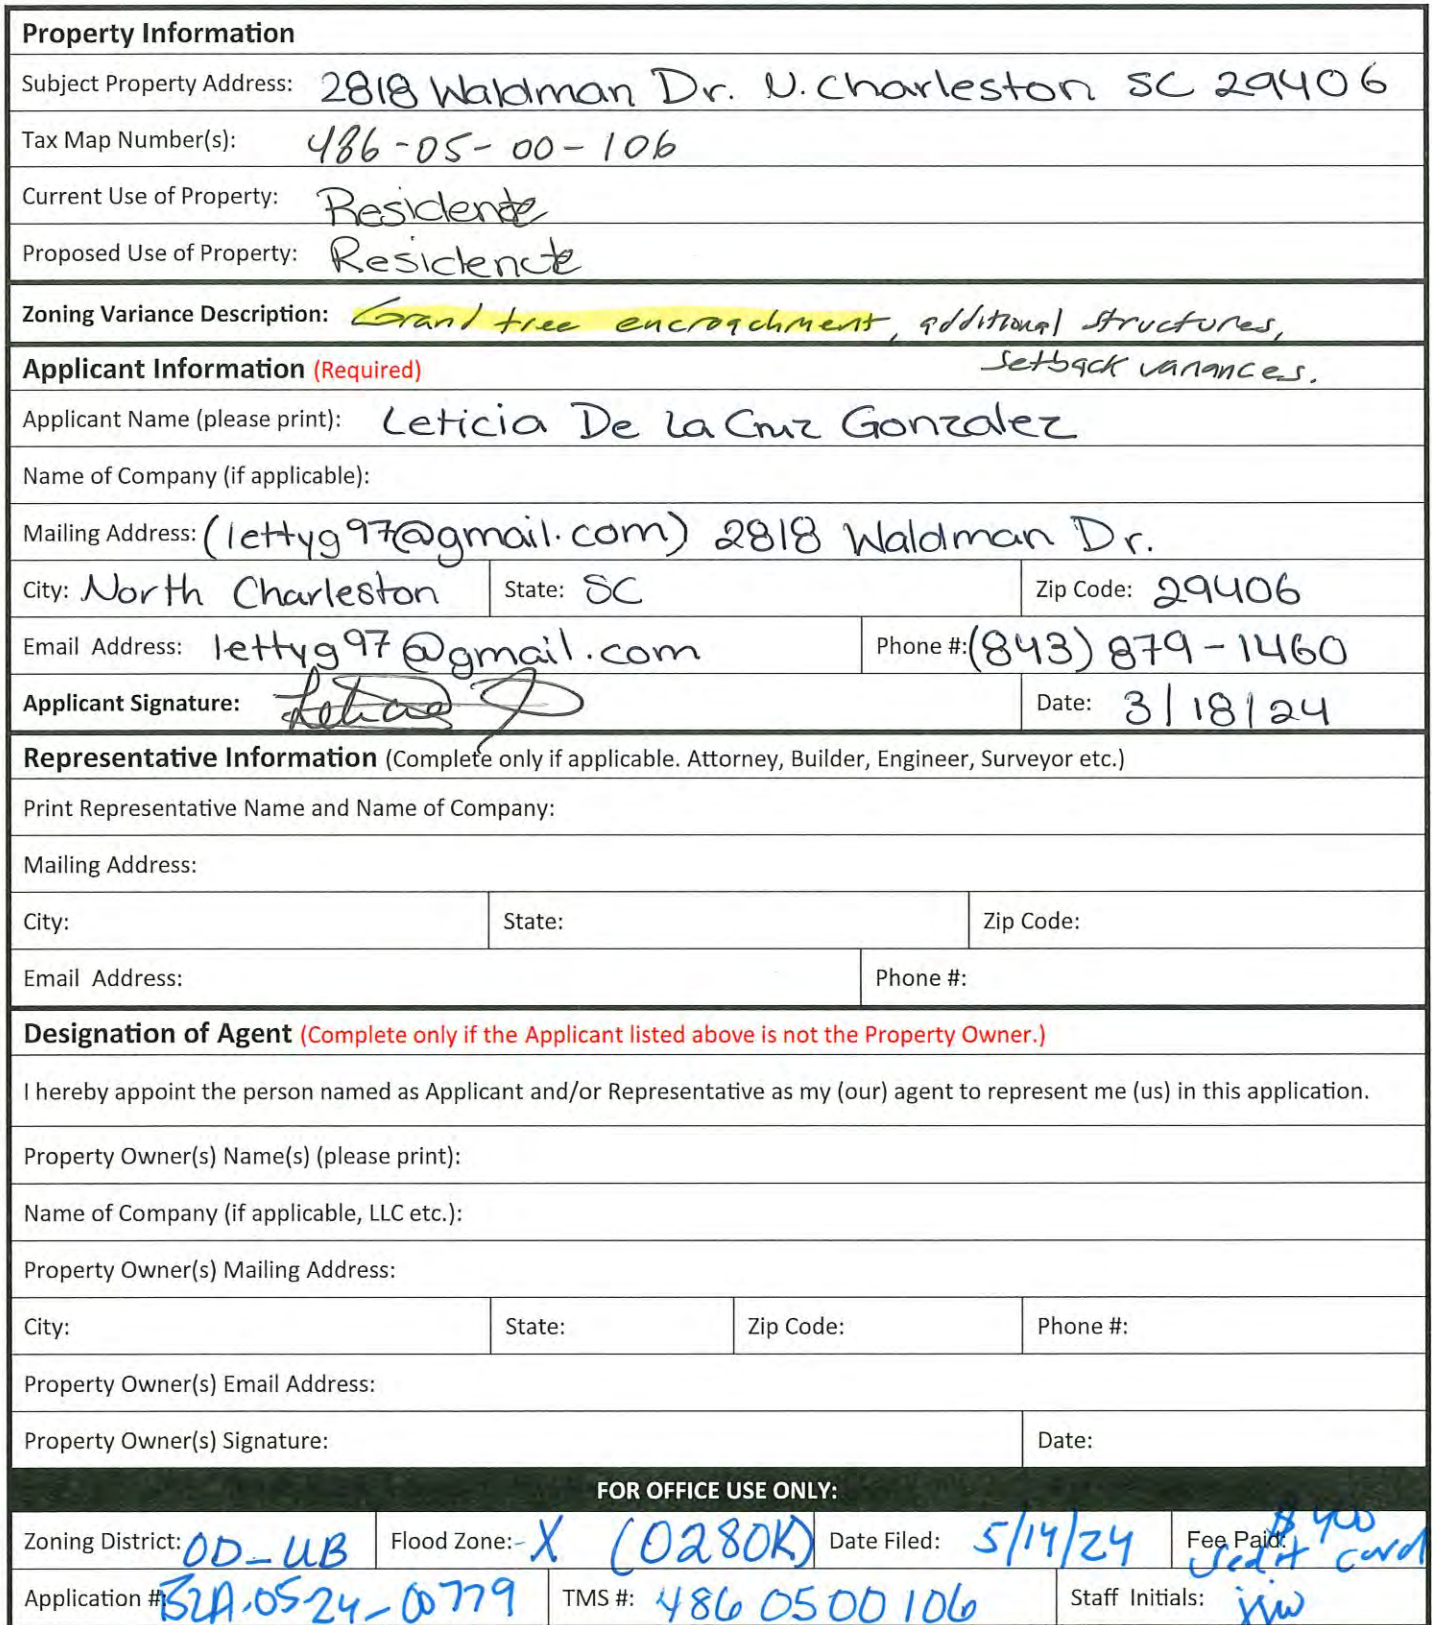 Property Information
Subject Property Address: 2818 Waldman Dr. N. Charleston SC 29406
Tax Map Number(s): 486-05-00-106
Current Use of Property: Residence
Proposed Use of Property: Residence
Zoning Variance Description: Grand tree encroachment, additional structures,
setback variances.
Applicant Information (Required)
Applicant Name (please print): Leticia De La Cruz Gonzalez
Name of Company (if applicable):
Mailing Address: (lettyg97@gmail.com) 2818 Waldman Dr.
City: North Charleston State: SC Zip Code: 29406
Email Address: lettyg97@gmail.com Phone #: (843) 879-1460
Applicant Signature: Date: 3/18/24
Representative Information (Complete only if applicable. Attorney, Builder, Engineer, Surveyor etc.)
Print Representative Name and Name of Company:
Mailing Address:
City: State: Zip Code:
Email Address: Phone #:
Designation of Agent (Complete only if the Applicant listed above is not the Property Owner.)
I hereby appoint the person named as Applicant and/or Representative as my (our) agent to represent me (us) in this application.
Property Owner(s) Name(s) (please print):
Name of Company (if applicable, LLC etc.):
Property Owner(s) Mailing Address:
City: State: Zip Code: Phone #:
Property Owner(s) Email Address:
Property Owner(s) Signature: Date:
FOR OFFICE USE ONLY:
Zoning District: OD-UB Flood Zone: X (0280K) Date Filed: 5/14/24 Fee Paid: $400 credit card
Application #: BZA-05-24-00779 TMS #: 4860500106 Staff Initials: jjw